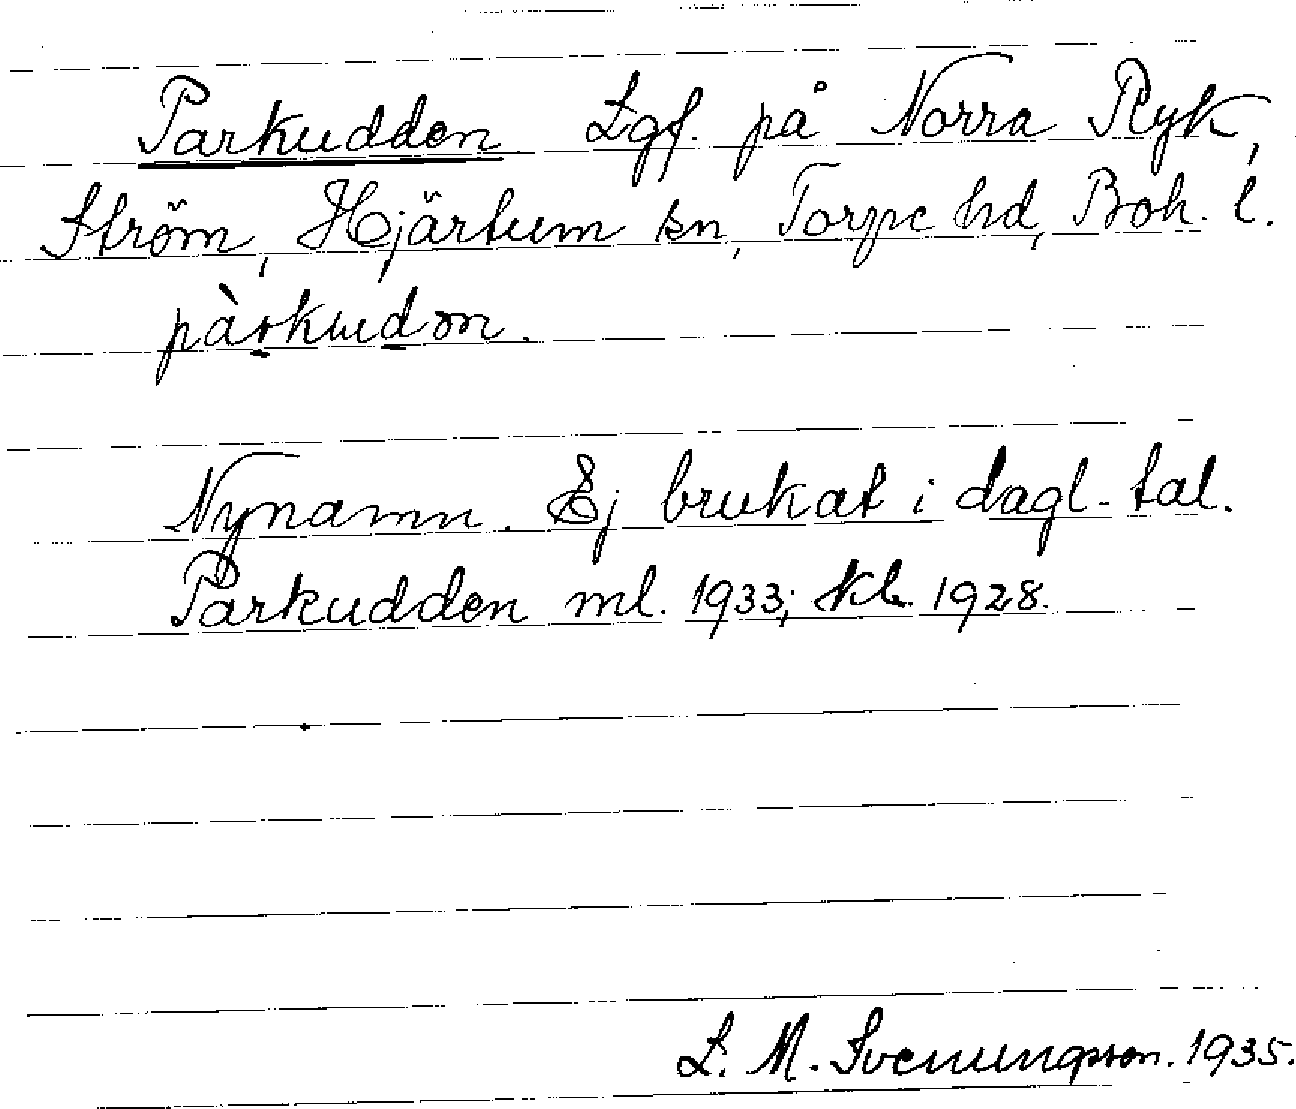 Parkudden Lgf. på Norra Ryk,
Ström, Hjärtum sn, Torpe hd, Boh. l.
pàrkudən.
Nynamn. Ej brukat i dagl. tal.
Parkudden ml. 1933; kl. 1928.
L. M. Svenungsson. 1935.